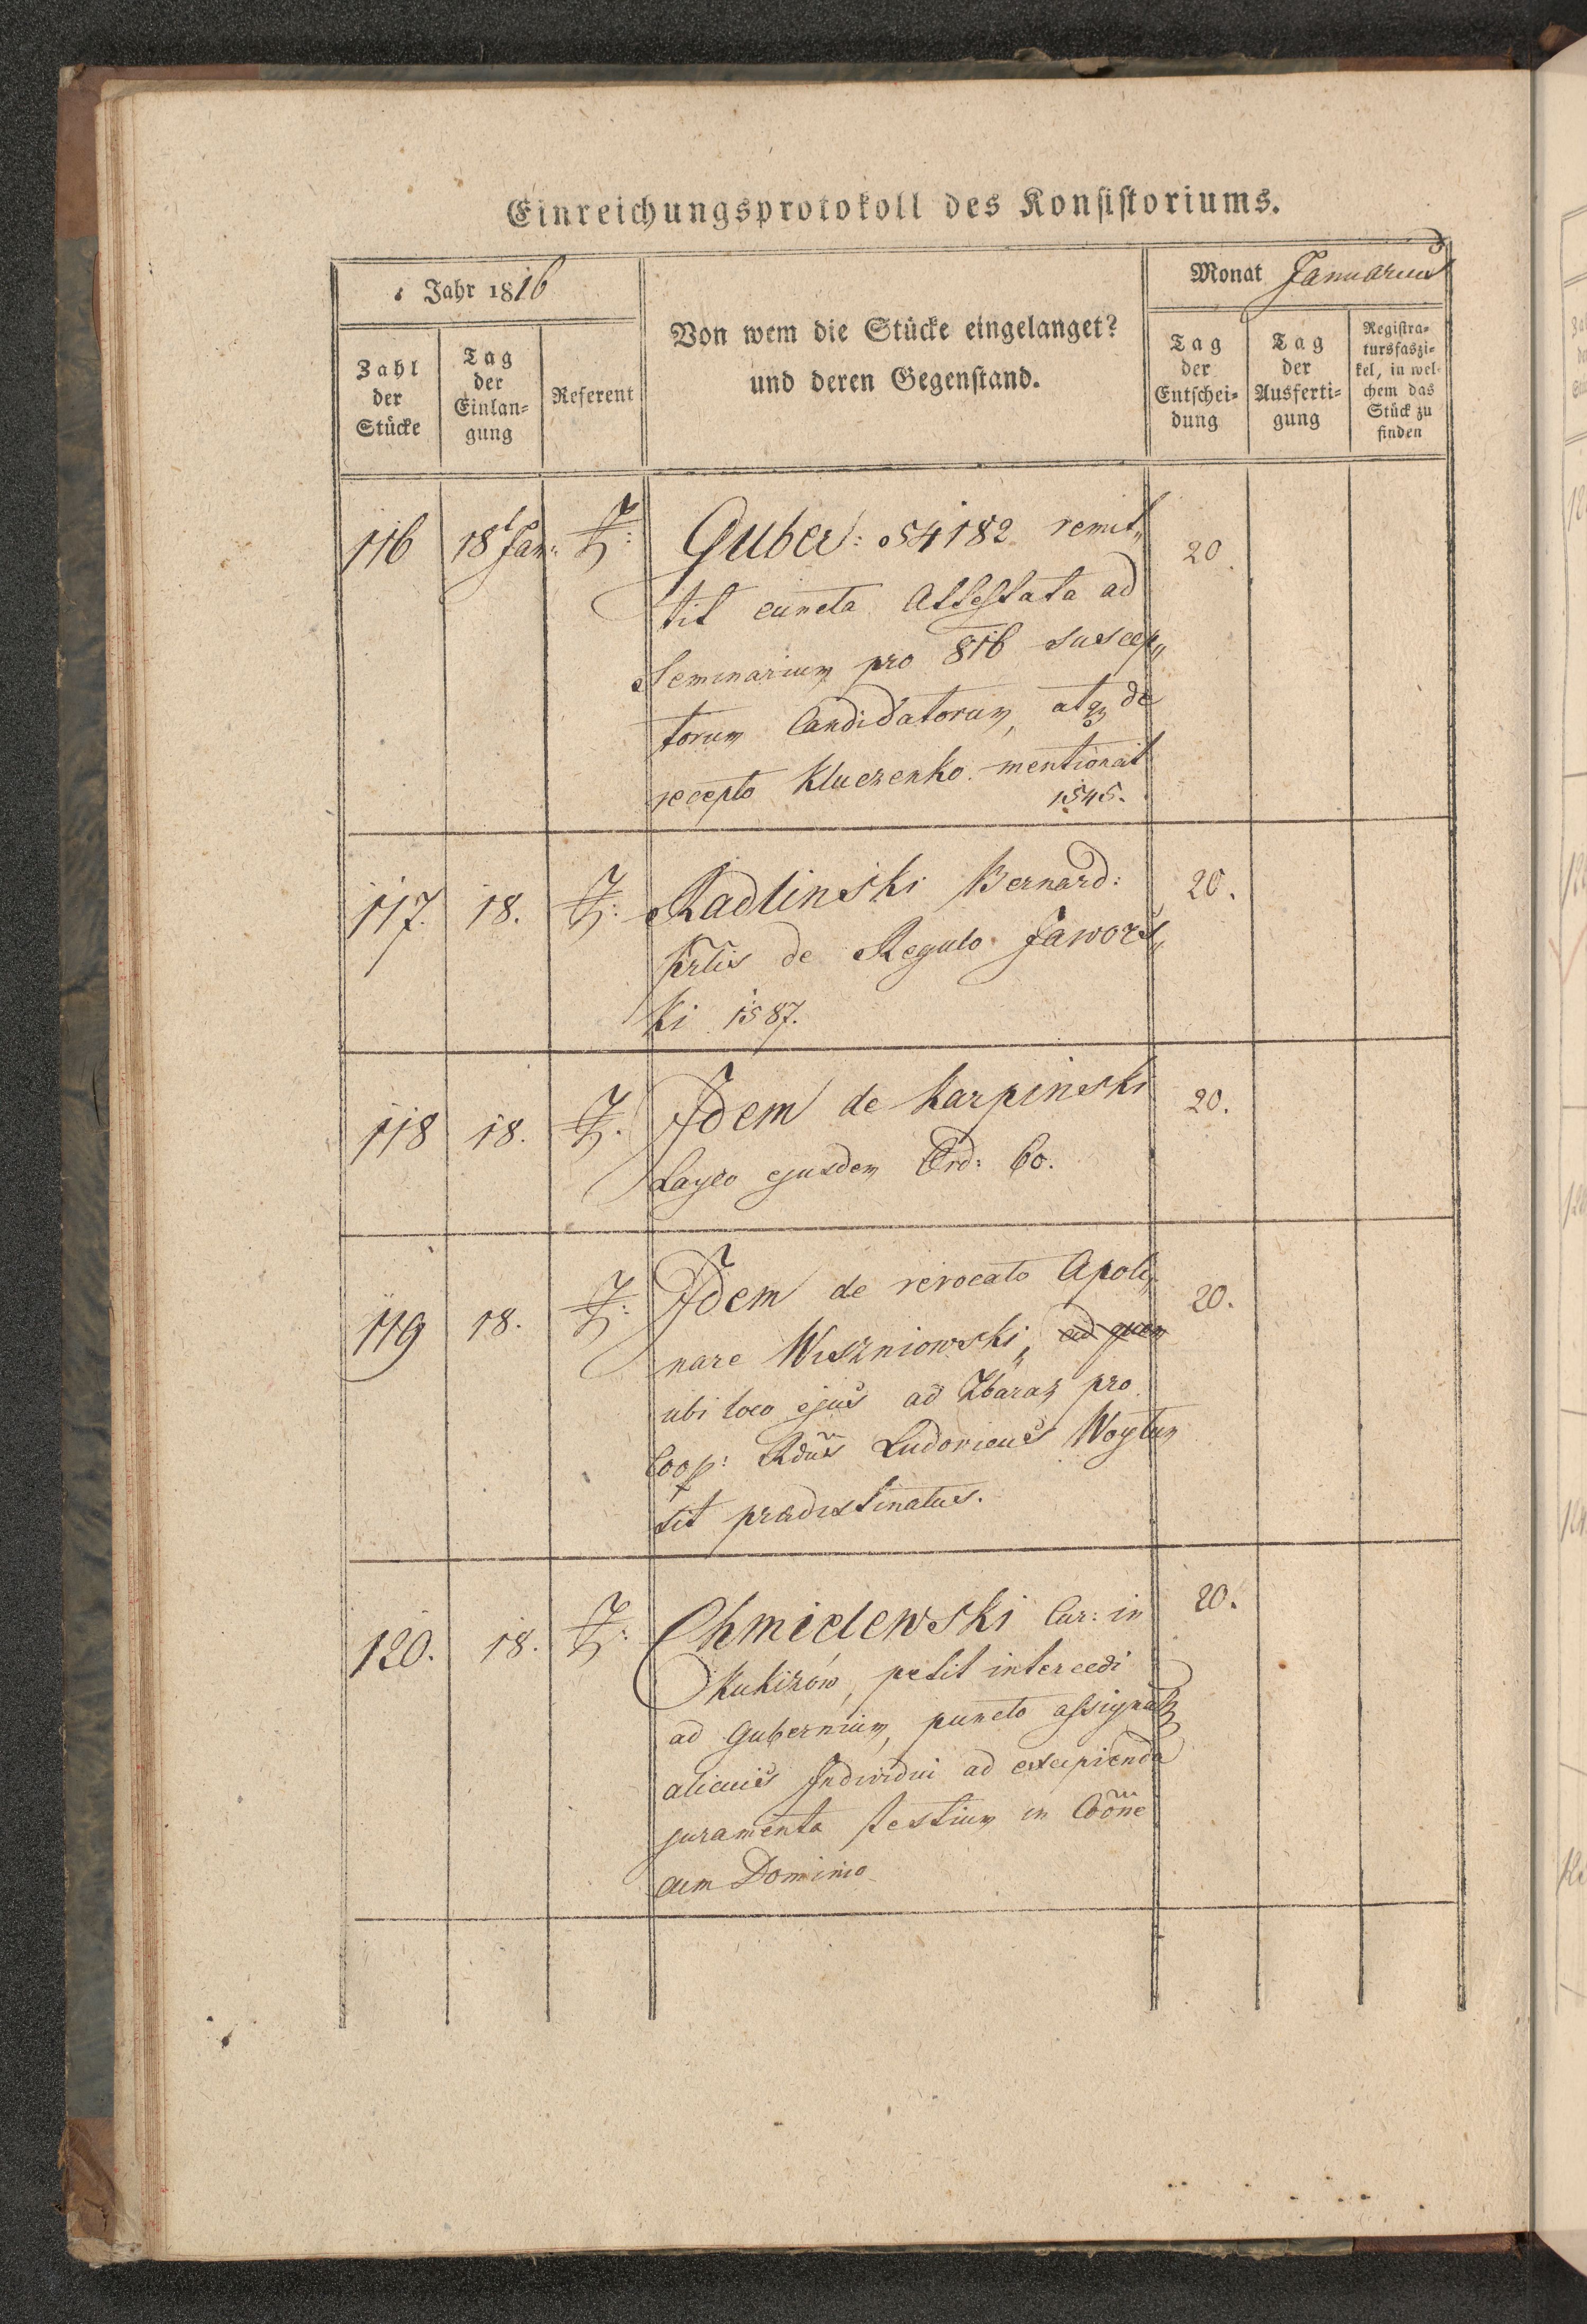 Einreichungsprotokoll des Konsistoriums.
Jahr 1816
Monat Januarius
Zahl der Stücke
Tag der Einlan-gung
Referent
Von wem die Stücke eingelanget?
und deren Gegenstand.
Tag der Entschei-dung
Tag der Ausferti-gung
Registra-tursfaszi-kel, in wel-chem das Stück zu finden
116 18t Jan: Guber: 54182 remit„ 20.
tit cuncta Attestata ad
Seminarium pro 816 suscep„
torum Candidatorum, atq de
recepto Kluczenko mentionat
1545.
117. 18. Radlinski Bernard: 20.
Prlis de Regulo Jawors„
ki 1587.
118 18. Idem de Karpinski 20.
Layco ejusdem Ord: 60.
119 18. Idem de revocato Apoli„ 20.
nare Wiszniowski, ad quem
ubi loco ejus ad Zbaraz pro
Coop: Rdus Ludovicus Woytun
sit prædestinatus.
120. 18. Chmielewski Cur: in 20.
Kukizów, petit intercedi
ad Gubernium, puncto assignats
alicuis Individui ad excipienda
juramenta testium in Coone
cum Dominio